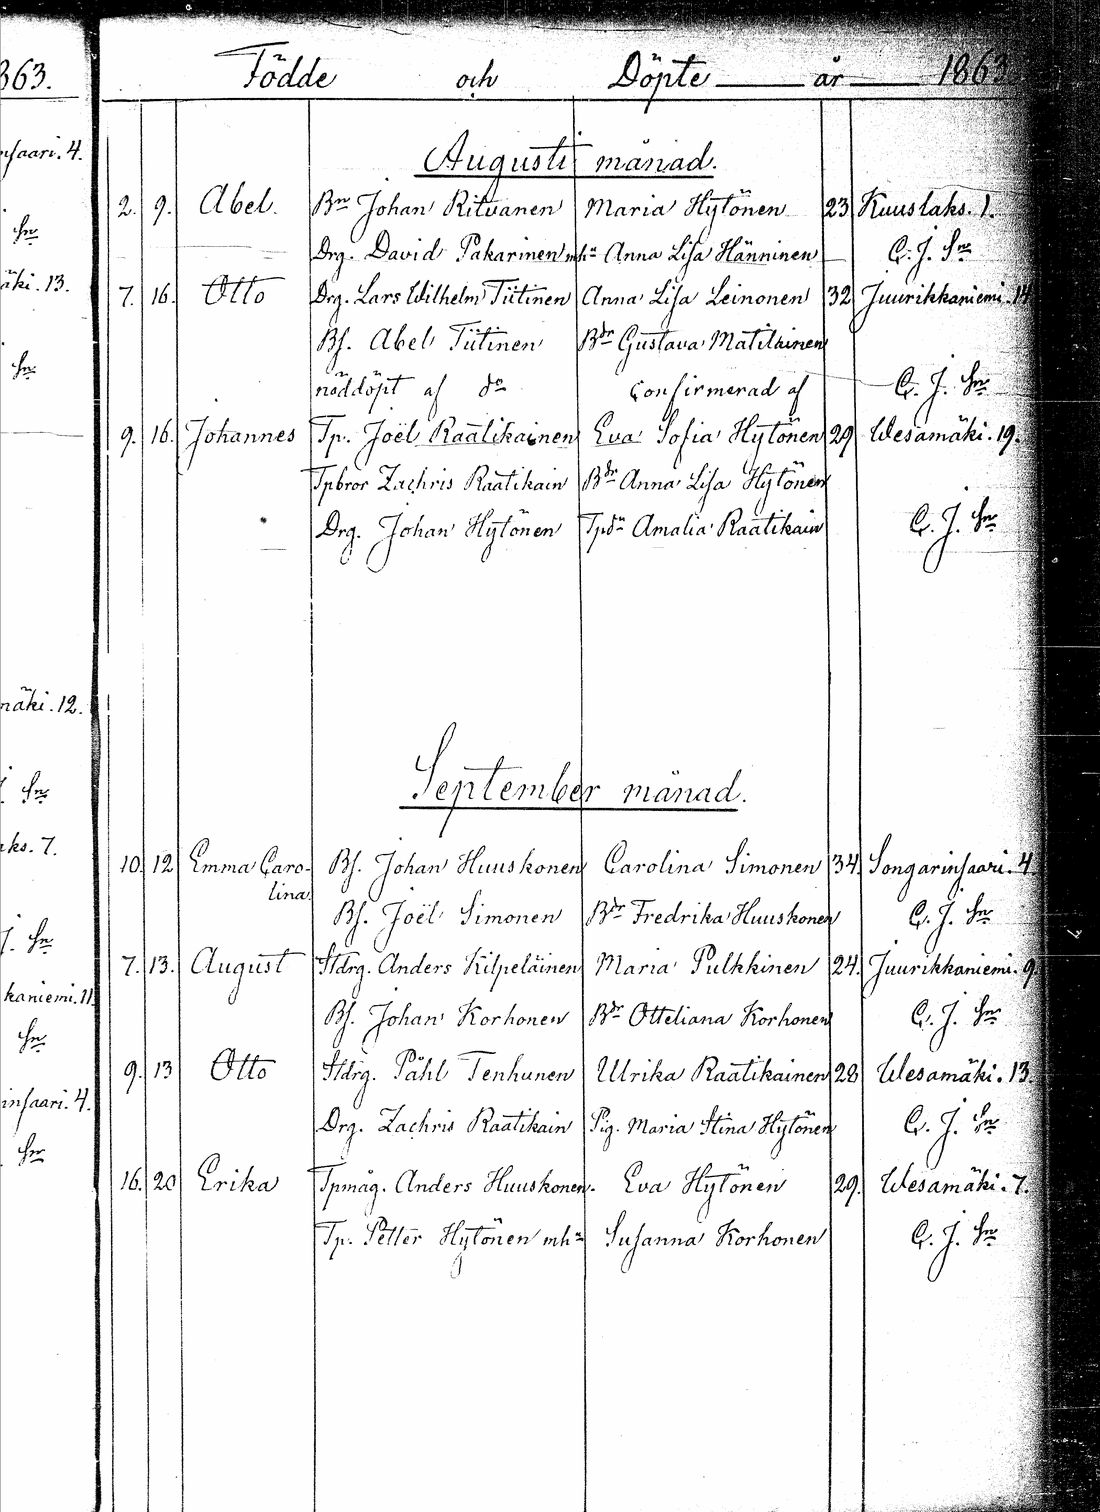 363.
nsaari. 4.
Sn
äki. 13.
Sn
mäki. 12.
J. Sn
aks. 7.
J. Sn
kaniemi. 11
Sn
insaari. 4.
Sn
Födde och Döpte år 1863
Augusti månad.
2. 9. Abel. Bn Johan Ritvanen Maria Hytönen 23 Kuuslaks. 1.
Drg. David Pakarinen mha Anna Lisa Hänninen C. J. Sn
7. 16. Otto Drg. Lars Wilhelm Tiitinen Anna Lisa Leinonen 32 Juurikkaniemi. 14
Bs. Abel Tiitinen Bdr Gustava Matilainen
nöddöpt af do Confirmerad af C. J. Sn
9. 16. Johannes Tp. Joël Raatikainen Eva Sofia Hytönen 29 Wesamäki. 19.
Tpbror Zachris Raatikain Bdr Anna Lisa Hytönen
Drg. Johan Hytönen Tpdr Amalia Raatikain C. J. Sn
September månad.
10. 12 Emma Caro- Bs. Johan Huuskonen Carolina Simonen 34. Songarinsaari. 4
lina.
Bs. Joël Simonen Bdr Fredrika Huuskonen C. J. Sn
7. 13. August Stdrg. Anders Kilpeläinen Maria Pulkkinen 24. Juurikkaniemi. 9
Bs. Johan Korhonen Bdr Otteliana Korhonen C. J. Sn
9. 13 Otto Stdrg. Påhl Tenhunen Ulrika Raatikainen 28 Wesamäki. 13.
Drg. Zachris Raatikain Pig. Maria Stina Hytönen C. J. Sn
16. 20 Erika Tpmåg. Anders Huuskonen. Eva Hytönen 29. Wesamäki. 7.
Tp. Petter Hytönen mha Susanna Korhonen C. J. Sn